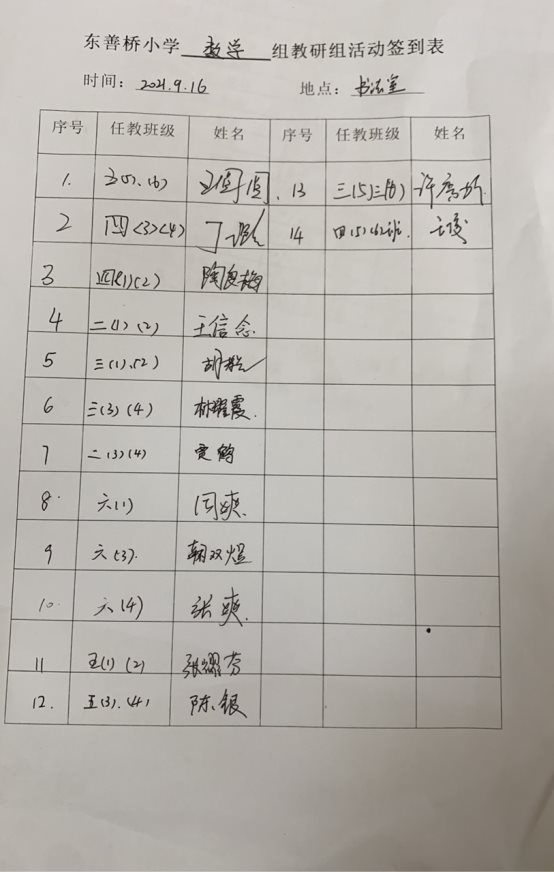 东善桥小学 数学 组教研组活动签到表
时间: 2021.9.16 地点: 书法室
序号 任教班级 姓名 序号 任教班级 姓名
1. 五(5)、(6) 王团团. 13 三(5)三(6)
2 四(3)(4) 丁 14 四(5)(6)班.
3 四(1)(2) 陶良梅
4 二(1)(2) 王信念
5 三(1)、(2) 胡
6 三(3)(4) 林耀霞.
7 二(3)(4)
8. 六(1) 闫爽.
9 六(3). 鞠双煜
10. 六(4) 张爽.
11 五(1)(2) 张耀芬
12. 五(3).(4) 陈银